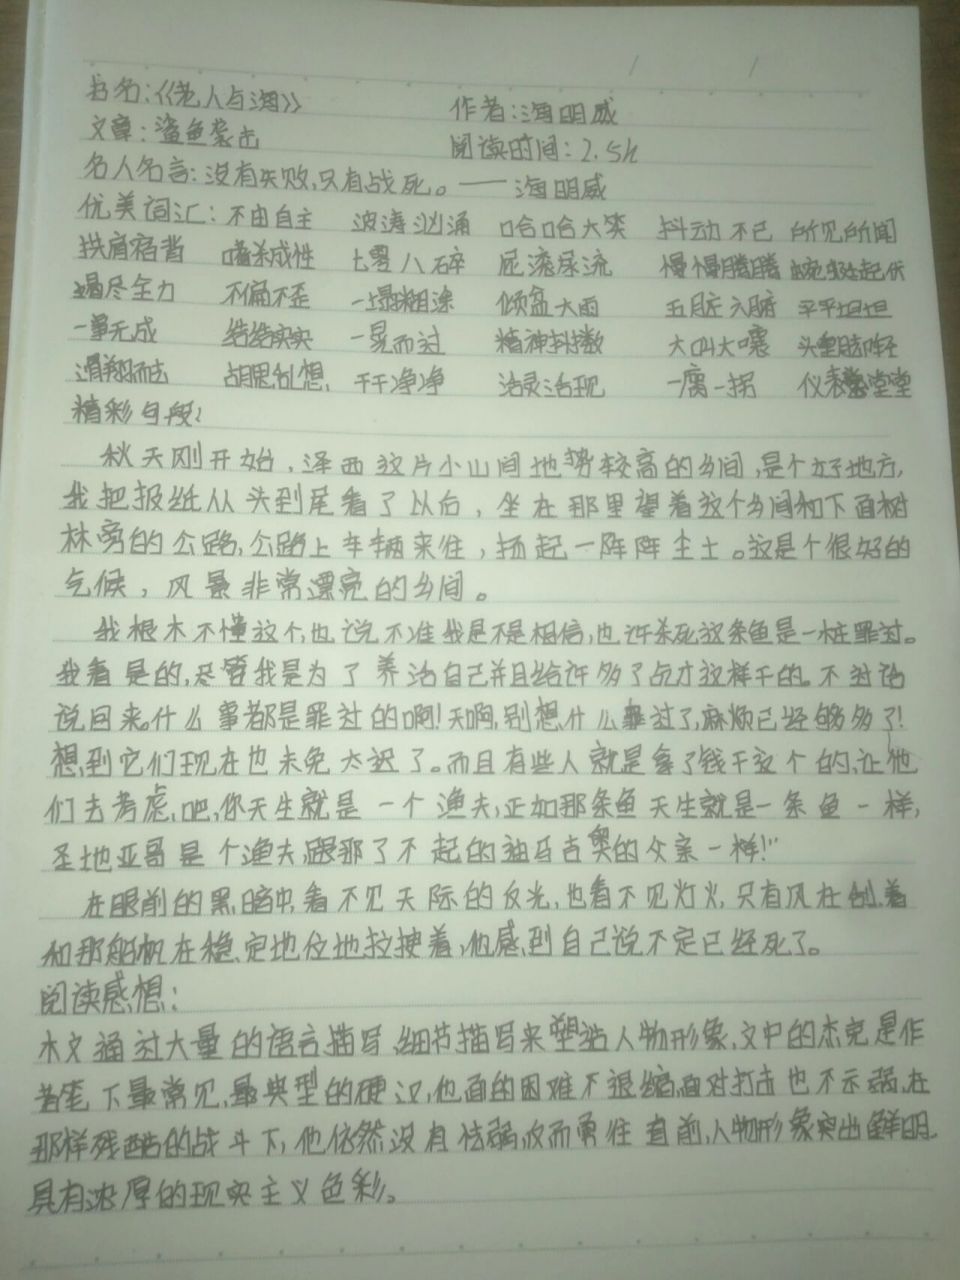 书名:《老人与海》 作者:海明威
文章:鲨鱼袭击 阅读时间:2.5h
名人名言:没有失败,只有战死。——海明威
优美词汇:不由自主 波涛汹涌 哈哈大笑 抖动不已 所见所闻
拱肩宿背 嗜杀成性 七零八碎 屁滚尿流 慢慢腾腾 蜿蜒起伏
竭尽全力 不偏不歪 一塌糊涂 倾盆大雨 五脏六腑 平平坦坦
一事无成 结结实实 一晃而过 精神抖擞 大叫大嚷 头重脚轻
滑翔而去 胡思乱想 干干净净 活灵活现 一瘸一拐 仪表堂堂
精彩句段:
秋天刚开始,泽西这片小山间地势较高的乡间,是个好地方,
我把报纸从头到尾看了以后,坐在那里望着这个乡间和下面树
林旁的公路,公路上车辆来往,扬起一阵阵尘土。这是个很好的
气候,风景非常漂亮的乡间。
我根本不懂这个,也说不准我是不是相信,也许杀死这条鱼是一桩罪过。
我看是的,尽管我是为了养活自己并且给许多了点才这样干的。不过话
说回来。什么事都是罪过的啊!天啊,别想什么罪过了,麻烦已经够多了!
想到它们现在也未免太迟了。而且有些人就是拿了钱干这个的,让他
们去考虑,吧,你天生就是一个渔夫,正如那条鱼天生就是一条鱼一样,
圣地亚哥是个渔夫,跟那了不起的迪马吉奥的父亲一样!"
在眼前的黑暗中,看不见天际的反光,也看不见灯火,只有风在刮着
和那船帆在稳定地位地拉拽着,他感到自己说不定已经死了。
阅读感想:
本文通过大量的语言描写,细节描写来塑造人物形象,文中的杰克是作
者笔下最常见,最典型的硬汉,他面的困难不退缩,面对打击也不示弱,在
那样残酷的战斗下,他依然没有怯弱,反而勇往直前,人物形象突出鲜明,
具有浓厚的现实主义色彩。